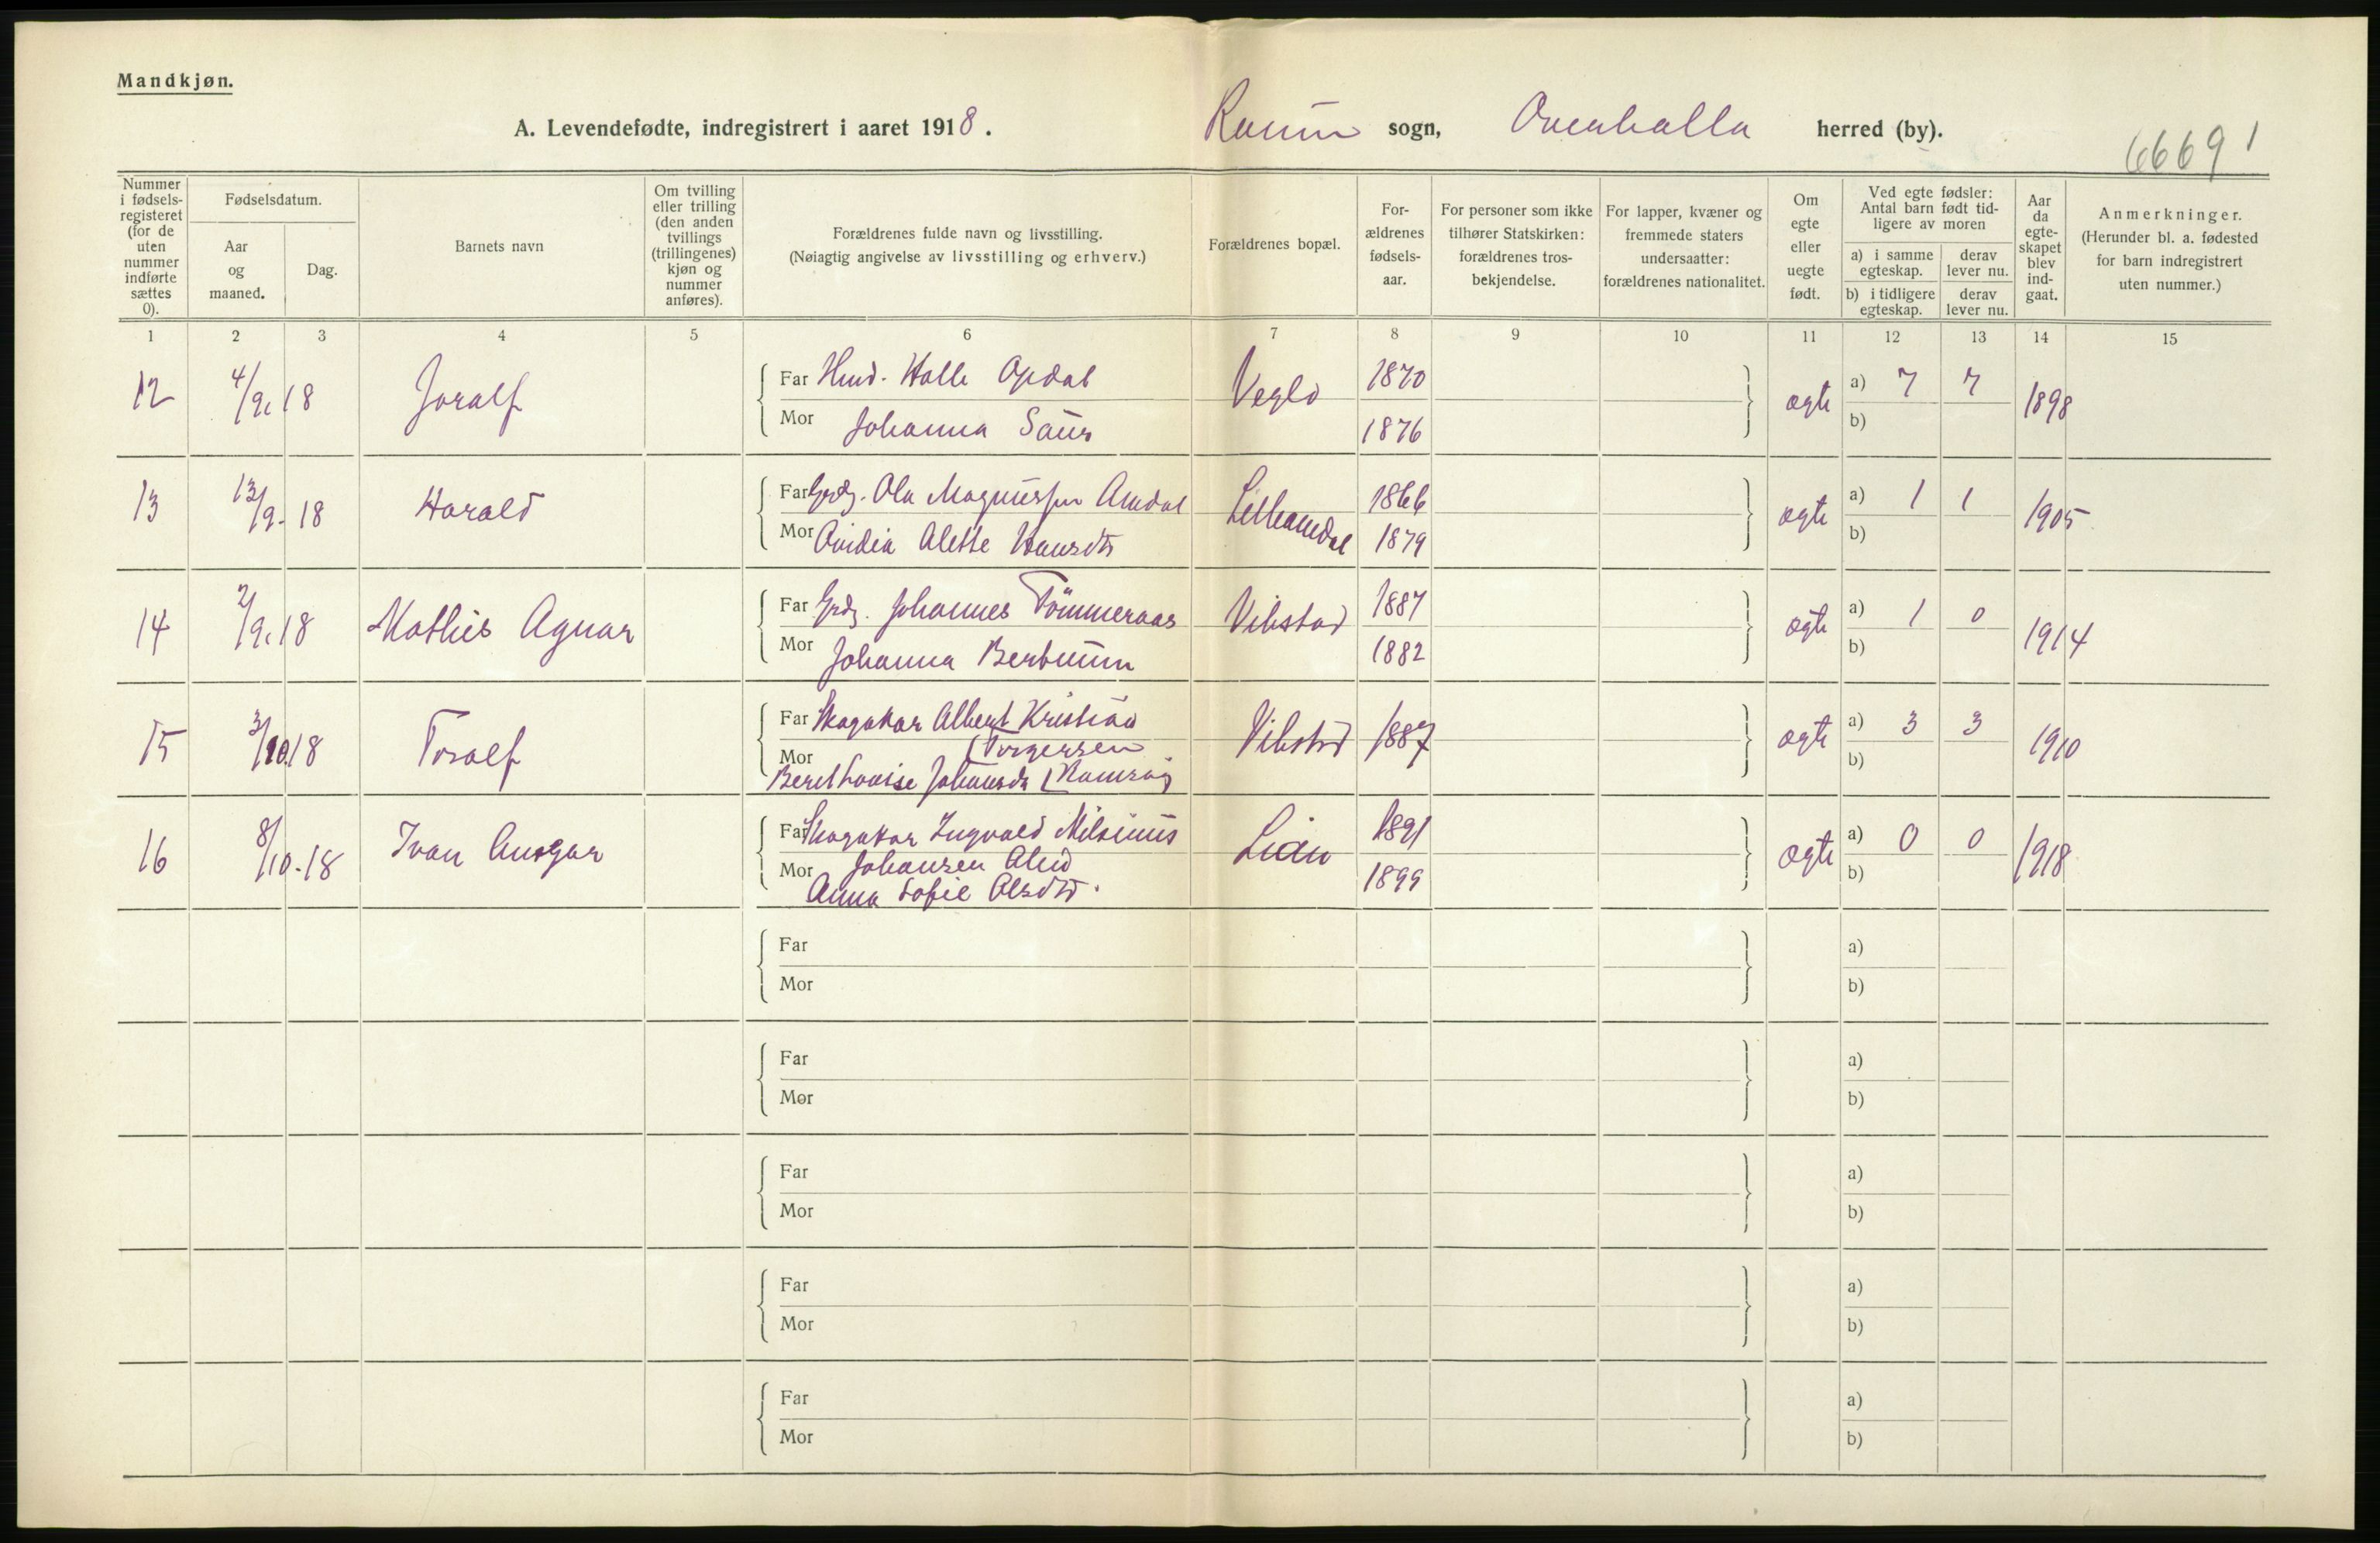 Mandkjøn.
A. Levendefødte, indregistrert i aaret 1918.
Ranum sogn, Overhalla herred (by).
66691
Nummer i fødsels-registeret (for de uten nummer indførte sættes 0).
Fødselsdatum.
Aar og maaned.
Dag.
Barnets navn
Om tvilling eller trilling (den anden tvillings (trillingenes) kjøn og nummer anføres).
Forældrenes fulde navn og livsstilling.
(Nøiagtig angivelse av livsstilling og erhverv.)
Forældrenes bopæl.
For-ældrenes fødsels-aar.
For personer som ikke tilhører Statskirken: forældrenes tros-bekjendelse.
For lapper, kvæner og fremmede staters undersaatter: forældrenes nationalitet.
Om egte eller uegte født.
Ved egte fødsler: Antal barn født tid-ligere av moren
a) i samme egteskap.
derav lever nu.
b) i tidligere egteskap.
derav lever nu.
Aar da egte-skapet blev ind-gaat.
Anmerkninger.
(Herunder bl. a. fødested for barn indregistrert uten nummer.)
1 2 3 4 5 6 7 8 9 10 11 12 13 14 15
12 4/9. 18 Joralf Far Hmd. Halle Opdal Veglo 1870 ægte a) 7 7 1898
Mor Johanna Saur 1876 b)
13 13/9. 18 Harald Far Grdbr. Ola Magnussen Amdal Lilleamdal 1866 ægte a) 1 1 1905
Mor Ovidia Alette Hansdtr 1879 b)
14 2/9. 18 Mathis Agnar Far Grdbr. Johannes Tömmeraas Vibstad 1887 ægte a) 1 0 1914
Mor Johanna Bertnum 1882 b)
15 3/10. 18 Toralf Far Skogskar Albert Kristian Vibstad 1887 ægte a) 3 3 1910
Mor (Torgersen b)
Beret Lovise Johansdr
16 8/10. 18 Ivan Ansgar Far Skogskar Ingvald Nilsinus Lian 1891 ægte a) 0 0 1918
Mor Johansen 1899 b)
Anna Sofie Olsdtr.
Far a)
Mor b)
Far a)
Mor b)
Far a)
Mor b)
Far a)
Mor b)
Far a)
Mor b)